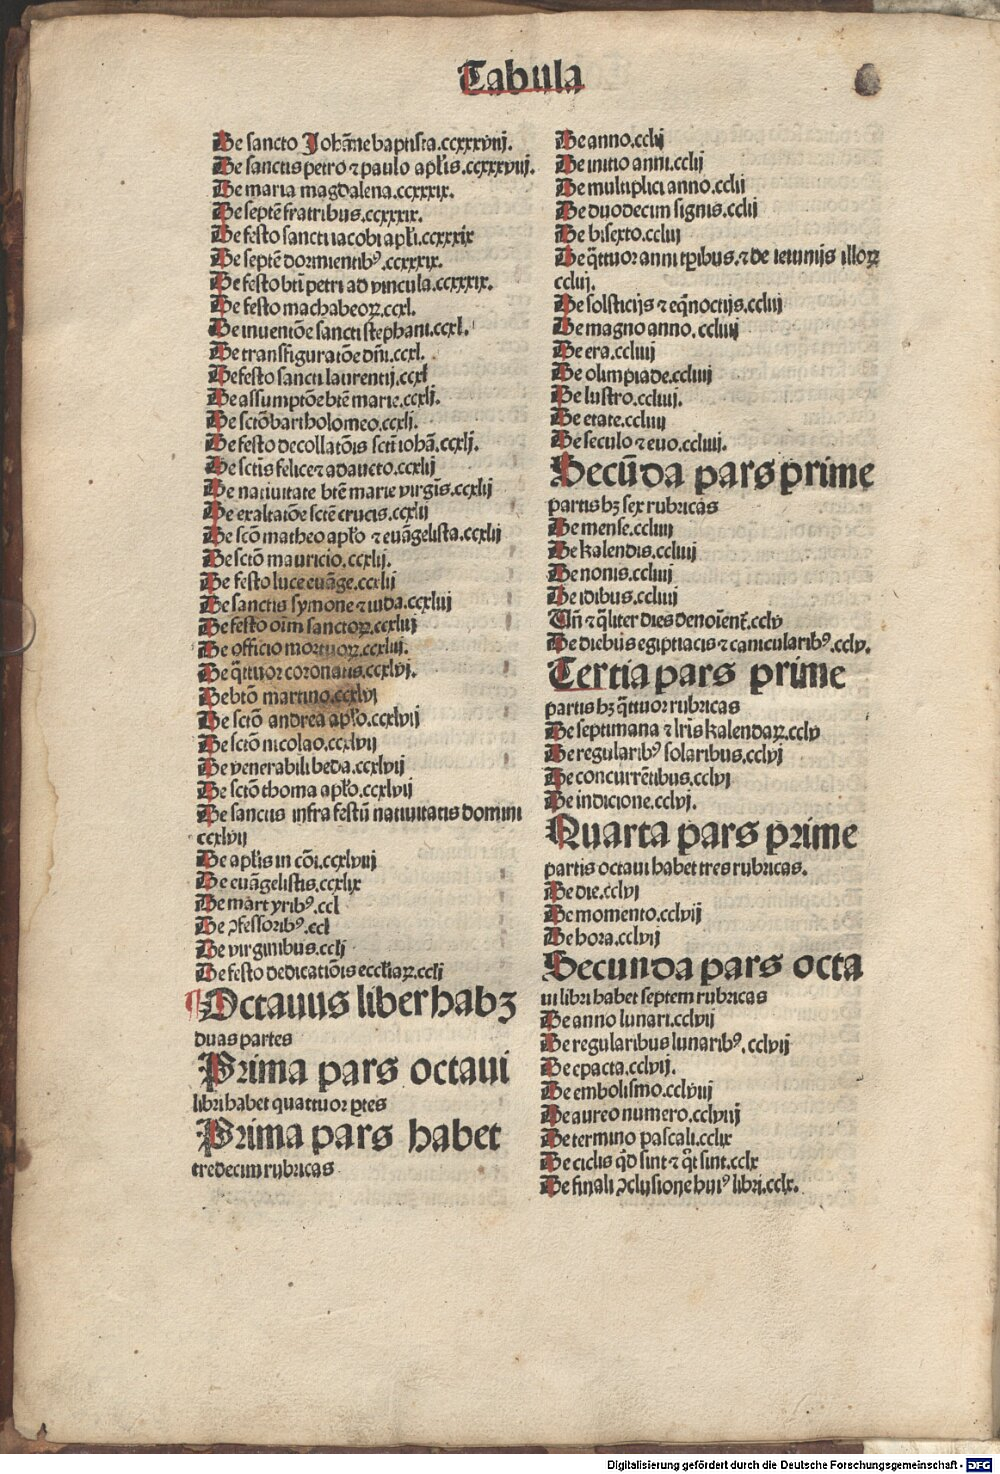 Tabula
De sancto Johāne baptista.ccxxxviij.
De sanctis petro ⁊ paulo apl'is.ccxxxviij.
De maria magdalena.ccxxxix.
De septē fratribus.ccxxxix.
De festo sancti iacobi apl'i.ccxxxix
De septē dormientibꝰ.ccxxxix.
De festo bti petri ad vincula.ccxxxix.
De festo machabeoꝝ.ccxl.
De inuentiōe sancti stephani.ccxl.
De transfiguratiōe dn̄i.ccxl.
De festo sancti laurentij.ccxl
De assumptōe btē marie.ccxlj.
De sctō bartholomeo.ccxlj.
De festo decollatōis scti iohā.ccxlj.
De sctis felice ⁊ adaucto.ccxlij
De natiuitate btē marie virgīs.ccxlij
De exaltatiōe sctē crucis.ccxlij
De scō matheo apl'o ⁊ euāgelista.ccxlij
De sctō mauricio.ccxlij.
De festo luce euāge.ccxlij
De sanctis symone ⁊ iuda.ccxliij
De festo oīm sanctoꝝ.ccxliij
De officio mortuoꝝ.ccxliij.
De q̄ttuor coronatis.ccxlvj.
De btō martino.ccxlvj
De sctō andrea apl'o.ccxlvij
De sctō nicolao.ccxlvij
De venerabili beda.ccxlvij
De sctō thoma apl'o.ccxlvij
De sanctis infra festū natiuitatis domini
ccxlvij
De apl'is in cōi.ccxlviij
De euāgelistis.ccxlix
De martyribꝰ.ccl
De ꝯfessoribꝰ.ccl
De virginibus.cclj
De festo dedicatiōis eccl'iaꝝ.cclj
¶Octauus liber habꝫ
duas partes
Prima pars octaui
libri habet quattuor ꝑtes
Prima pars habet
tredecim rubricas
De anno.cclij
De initio anni.cclij
De multiplici anno.cclij
De duodecim signis.cclij
De bisexto.ccliij
De q̄ttuor anni tꝑibus.⁊ de ieiunijs illoꝝ
ccliij.
De solsticijs ⁊ eq̄noctijs.ccliij
De magno anno.ccliiij
De era.ccliiij
De olimpiade.ccliiij
De lustro.ccliiij.
De etate.ccliiij
De seculo ⁊ euo.ccliiij.
Secūda pars prime
partis hꝫ sex rubricas
De mense.ccliiij
De kalendis.ccliiij
De nonis.ccliiij
De idibus.ccliiij
Vn̄ ⁊ q̄liter dies denoīent̄.cclv
De diebus egiptiacis ⁊ canicularibꝰ.cclv.
Tertia pars prime
partis hꝫ q̄ttuor rubricas
De septimana ⁊ lr̄is kalendaꝝ.cclv
De regularibꝰ solaribus.cclvj
De concurrētibus.cclvj
De indicione.cclvj.
Quarta pars prime
partis octaui habet tres rubricas.
De die.cclvj
De momento.cclvij
De hora.cclvij
Secunda pars octa
ui libri habet septem rubricas
De anno lunari.cclvij
De regularibus lunaribꝰ.cclvij
De epacta.cclvij.
De embolismo.cclviij
De aureo numero.cclviij
De termino pascali.cclix
De ciclis qd̄ sint ⁊ q̄t sint.cclx
De finali ꝯclusione huiꝰ libri.cclx.
Digitalisierung gefördert durch die Deutsche Forschungsgemeinschaft - DFG